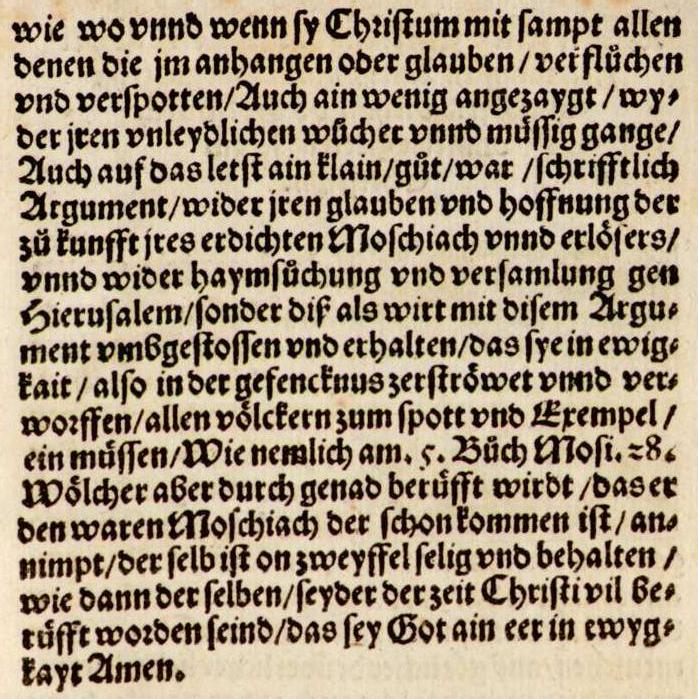 wie wo vnnd wenn sy Christum mit sampt allen
denen die jm anhangen oder glauben / verflůchen
vnd verspotten/Auch ain wenig angezaygt / wy⸗
der jren vnleydlichen wůcher vnnd müssig gange/
Auch auf das letst ain klain/gůt/war /schrifftlich
Argument/wider jren glauben vnd hoffnung der
zů kunfft jres erdichten Moschiach vnnd erlösers/
vnnd wider haymsůchung vnd versamlung gen
Hierusalem/sonder diß als wirt mit disem Argu⸗
ment vmbgestossen vnd erhalten/das sye in ewig⸗
kait / also in der gefencknus zerströwet vnnd ver⸗
worffen/allen völckern zum spott vnd Exempel /
ein müssen/Wie nemlich am. 5. Bůch Mosi. 28.
Wölcher aber durch genad berüfft wirdt /das er
den waren Moschiach der schon kommen ist / an⸗
nimpt/der selb ist on zweyffel selig vnd behalten /
wie dann der selben/seyder der zeit Christi vil be⸗
rüfft worden seind/das sey Got ain eer in ewyg⸗
kayt Amen.